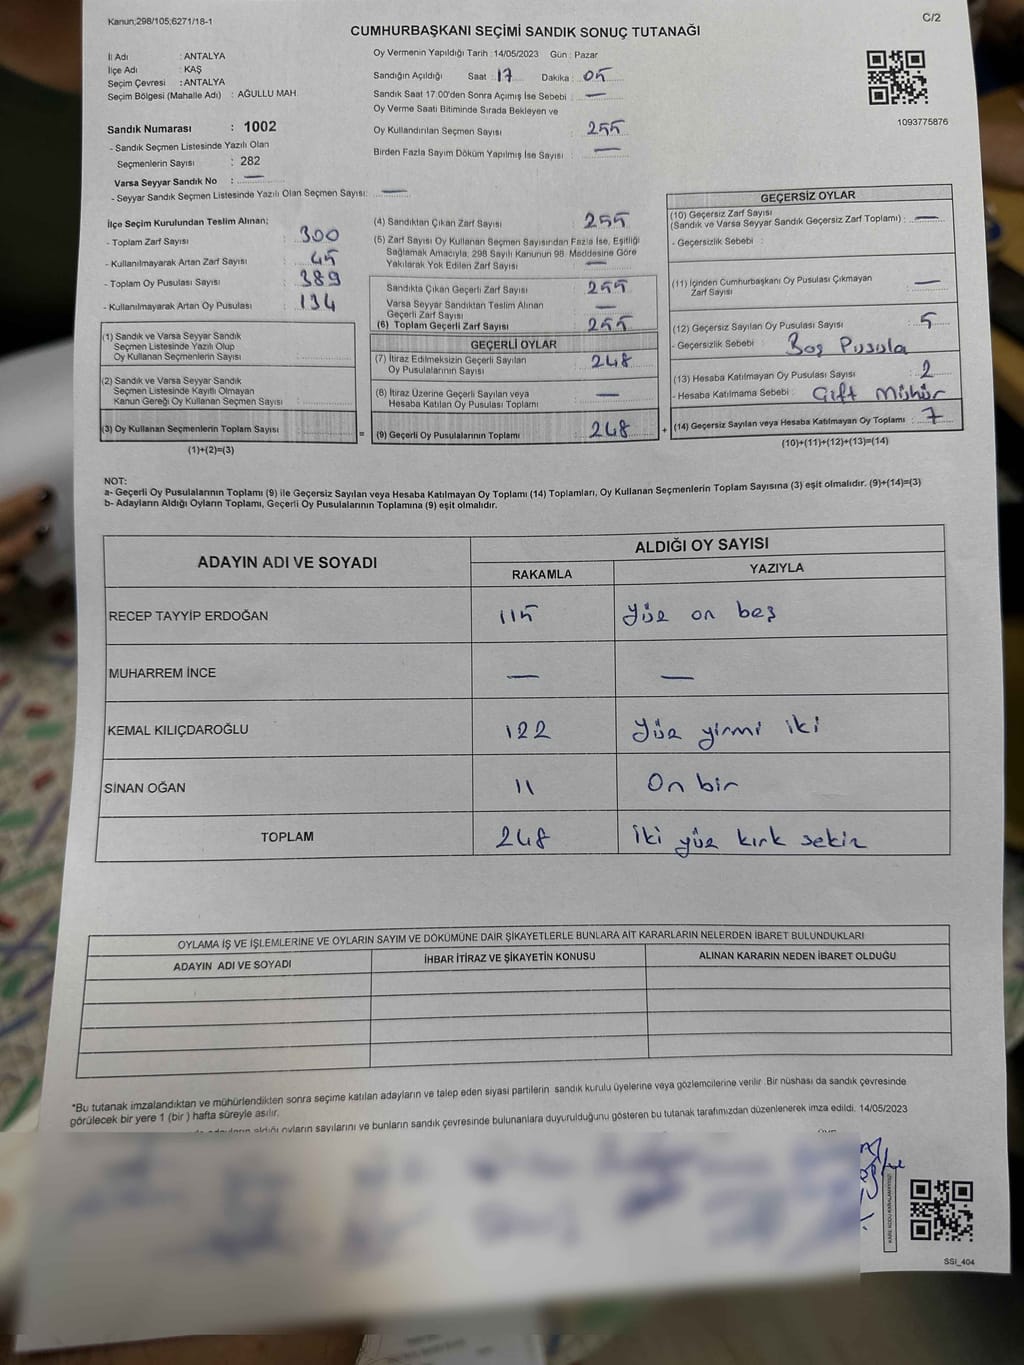 Kanun;298/105;6271/18-1
C/2
CUMHURBAŞKANI SEÇİMİ SANDIK SONUÇ TUTANAĞI
İl Adı : ANTALYA
İlçe Adı : KAŞ
Seçim Çevresi : ANTALYA
Seçim Bölgesi (Mahalle Adı) : AĞULLU MAH.
Sandık Numarası : 1002
- Sandık Seçmen Listesinde Yazılı Olan
Seçmenlerin Sayısı : 282
Varsa Seyyar Sandık No : —
- Seyyar Sandık Seçmen Listesinde Yazılı Olan Seçmen Sayısı: —
Oy Vermenin Yapıldığı Tarih : 14/05/2023 Gün : Pazar
Sandığın Açıldığı Saat : 17 Dakika : 05
Sandık Saat 17.00'den Sonra Açımış İse Sebebi : —
Oy Verme Saati Bitiminde Sırada Bekleyen ve
Oy Kullandırılan Seçmen Sayısı : 255
Birden Fazla Sayım Döküm Yapılmış İse Sayısı : —
1093775876
İlçe Seçim Kurulundan Teslim Alınan;
- Toplam Zarf Sayısı : 300
- Kullanılmayarak Artan Zarf Sayısı : 45
- Toplam Oy Pusulası Sayısı : 389
- Kullanılmayarak Artan Oy Pusulası : 134
(1) Sandık ve Varsa Seyyar Sandık
Seçmen Listesinde Yazılı Olup
Oy Kullanan Seçmenlerin Sayısı :
(2) Sandık ve Varsa Seyyar Sandık
Seçmen Listesinde Kayıtlı Olmayan
Kanun Gereği Oy Kullanan Seçmen Sayısı :
(3) Oy Kullanan Seçmenlerin Toplam Sayısı :
(1)+(2)=(3)
=
(4) Sandıktan Çıkan Zarf Sayısı : 255
(5) Zarf Sayısı Oy Kullanan Seçmen Sayısından Fazla İse, Eşitliği
Sağlamak Amacıyla, 298 Sayılı Kanunun 98. Maddesine Göre
Yakılarak Yok Edilen Zarf Sayısı : —
Sandıkta Çıkan Geçerli Zarf Sayısı : 255
Varsa Seyyar Sandıktan Teslim Alınan
Geçerli Zarf Sayısı : —
(6) Toplam Geçerli Zarf Sayısı : 255
GEÇERLİ OYLAR
(7) İtiraz Edilmeksizin Geçerli Sayılan
Oy Pusulasının Sayısı : 248
(8) İtiraz Üzerine Geçerli Sayılan veya
Hesaba Katılan Oy Pusulası Toplamı : —
(9) Geçerli Oy Pusulalarının Toplamı : 248
+
GEÇERSİZ OYLAR
(10) Geçersiz Zarf Sayısı
(Sandık ve Varsa Seyyar Sandık Geçersiz Zarf Toplamı) : —
- Geçersizlik Sebebi :
(11) İçinden Cumhurbaşkanı Oy Pusulası Çıkmayan
Zarf Sayısı : —
(12) Geçersiz Sayılan Oy Pusulası Sayısı : 5
- Geçersizlik Sebebi : Boş Pusula
(13) Hesaba Katılmayan Oy Pusulası Sayısı : 2
- Hesaba Katılmama Sebebi : Çift Mühür
(14) Geçersiz Sayılan veya Hesaba Katılmayan Oy Toplamı : 7
(10)+(11)+(12)+(13)=(14)
NOT:
a- Geçerli Oy Pusulalarının Toplamı (9) ile Geçersiz Sayılan veya Hesaba Katılmayan Oy Toplamı (14) Toplamları, Oy Kullanan Seçmenlerin Toplam Sayısına (3) eşit olmalıdır. (9)+(14)=(3)
b- Adayların Aldığı Oyların Toplamı, Geçerli Oy Pusulalarının Toplamına (9) eşit olmalıdır.
ADAYIN ADI VE SOYADI
ALDIĞI OY SAYISI
RAKAMLA YAZIYLA
RECEP TAYYİP ERDOĞAN 115 Yüz on beş
MUHARREM İNCE — —
KEMAL KILIÇDAROĞLU 122 Yüz yirmi iki
SİNAN OĞAN 11 On bir
TOPLAM 248 İki yüz kırk sekiz
OYLAMA İŞ VE İŞLEMLERİNE VE OYLARIN SAYIM VE DÖKÜMÜNE DAİR ŞİKAYETLERLE BUNLARA AİT KARARLARIN NELERDEN İBARET BULUNDUKLARI
ADAYIN ADI VE SOYADI İHBAR İTİRAZ VE ŞİKAYETİN KONUSU ALINAN KARARIN NEDEN İBARET OLDUĞU
*Bu tutanak imzalandıktan ve mühürlendikten sonra seçime katılan adayların ve talep eden siyasi partilerin sandık kurulu üyelerine veya gözlemcilerine verilir. Bir nüshası da sandık çevresinde
görülecek bir yere 1 (bir ) hafta süreyle asılır.
adayların aldığı oyların sayılarını ve bunların sandık çevresinde bulunanlara duyurulduğunu gösteren bu tutanak tarafımızdan düzenlenerek imza edildi. 14/05/2023
SSI_404